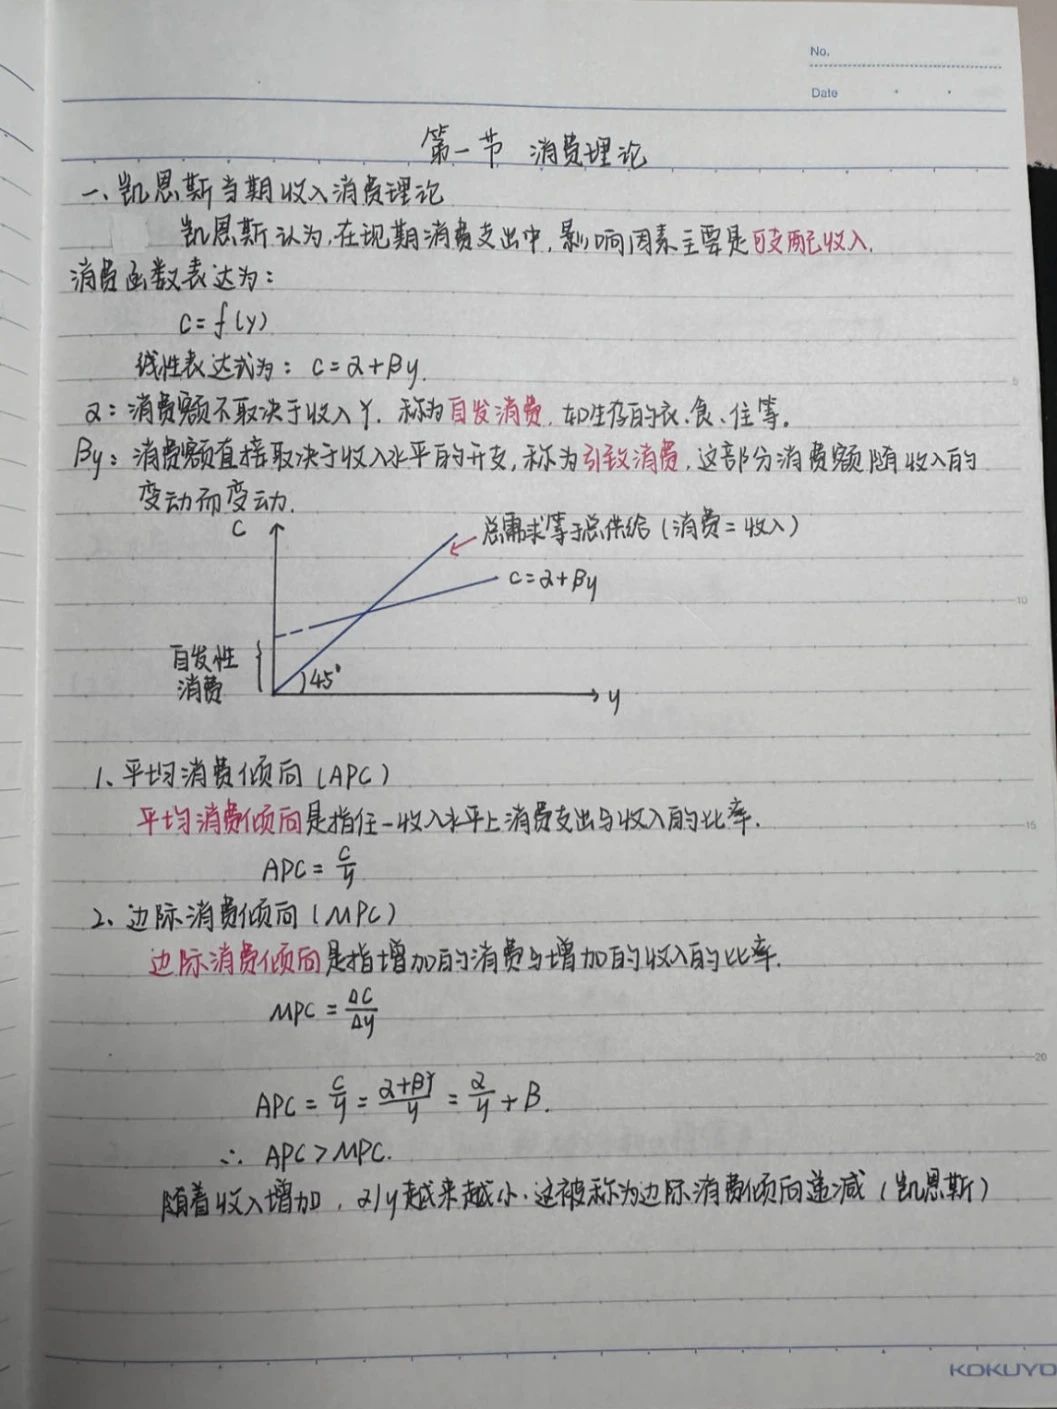 No.
Date
第一节 消费理论
一、凯恩斯当期收入消费理论
凯恩斯认为,在现期消费支出中,影响因素主要是可支配收入.
消费函数表达为:
C=f(y)
线性表达式为: C=α+βy.
α:消费额不取决于收入Y. 称为自发消费,如生存的衣、食、住等。
βy:消费额直接取决于收入水平的开支,称为引致消费,这部分消费额随收入的
变动而变动.
C
总需求等于总供给(消费=收入)
C=α+βy
自发性
消费
45°
y
5
10
1、平均消费倾向(APC)
平均消费倾向是指任一收入水平上消费支出与收入的比率.
15
APC=C/y
2、边际消费倾向(MPC)
边际消费倾向是指增加的消费与增加的收入的比率.
MPC=ΔC/Δy
20
APC=C/y=(α+βy)/y=α/y+β.
∴ APC>MPC.
随着收入增加,α/y越来越小.这被称为边际消费倾向递减(凯恩斯)
KOKUYO